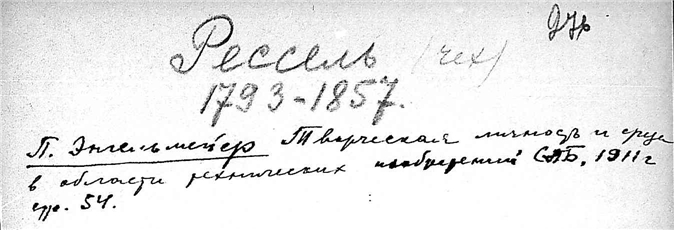 Рессель (чех)
1793-1857.
П. Энгельмейер Творческая личность и среда
в области технических изобретений СПБ, 1911 г
стр. 54.